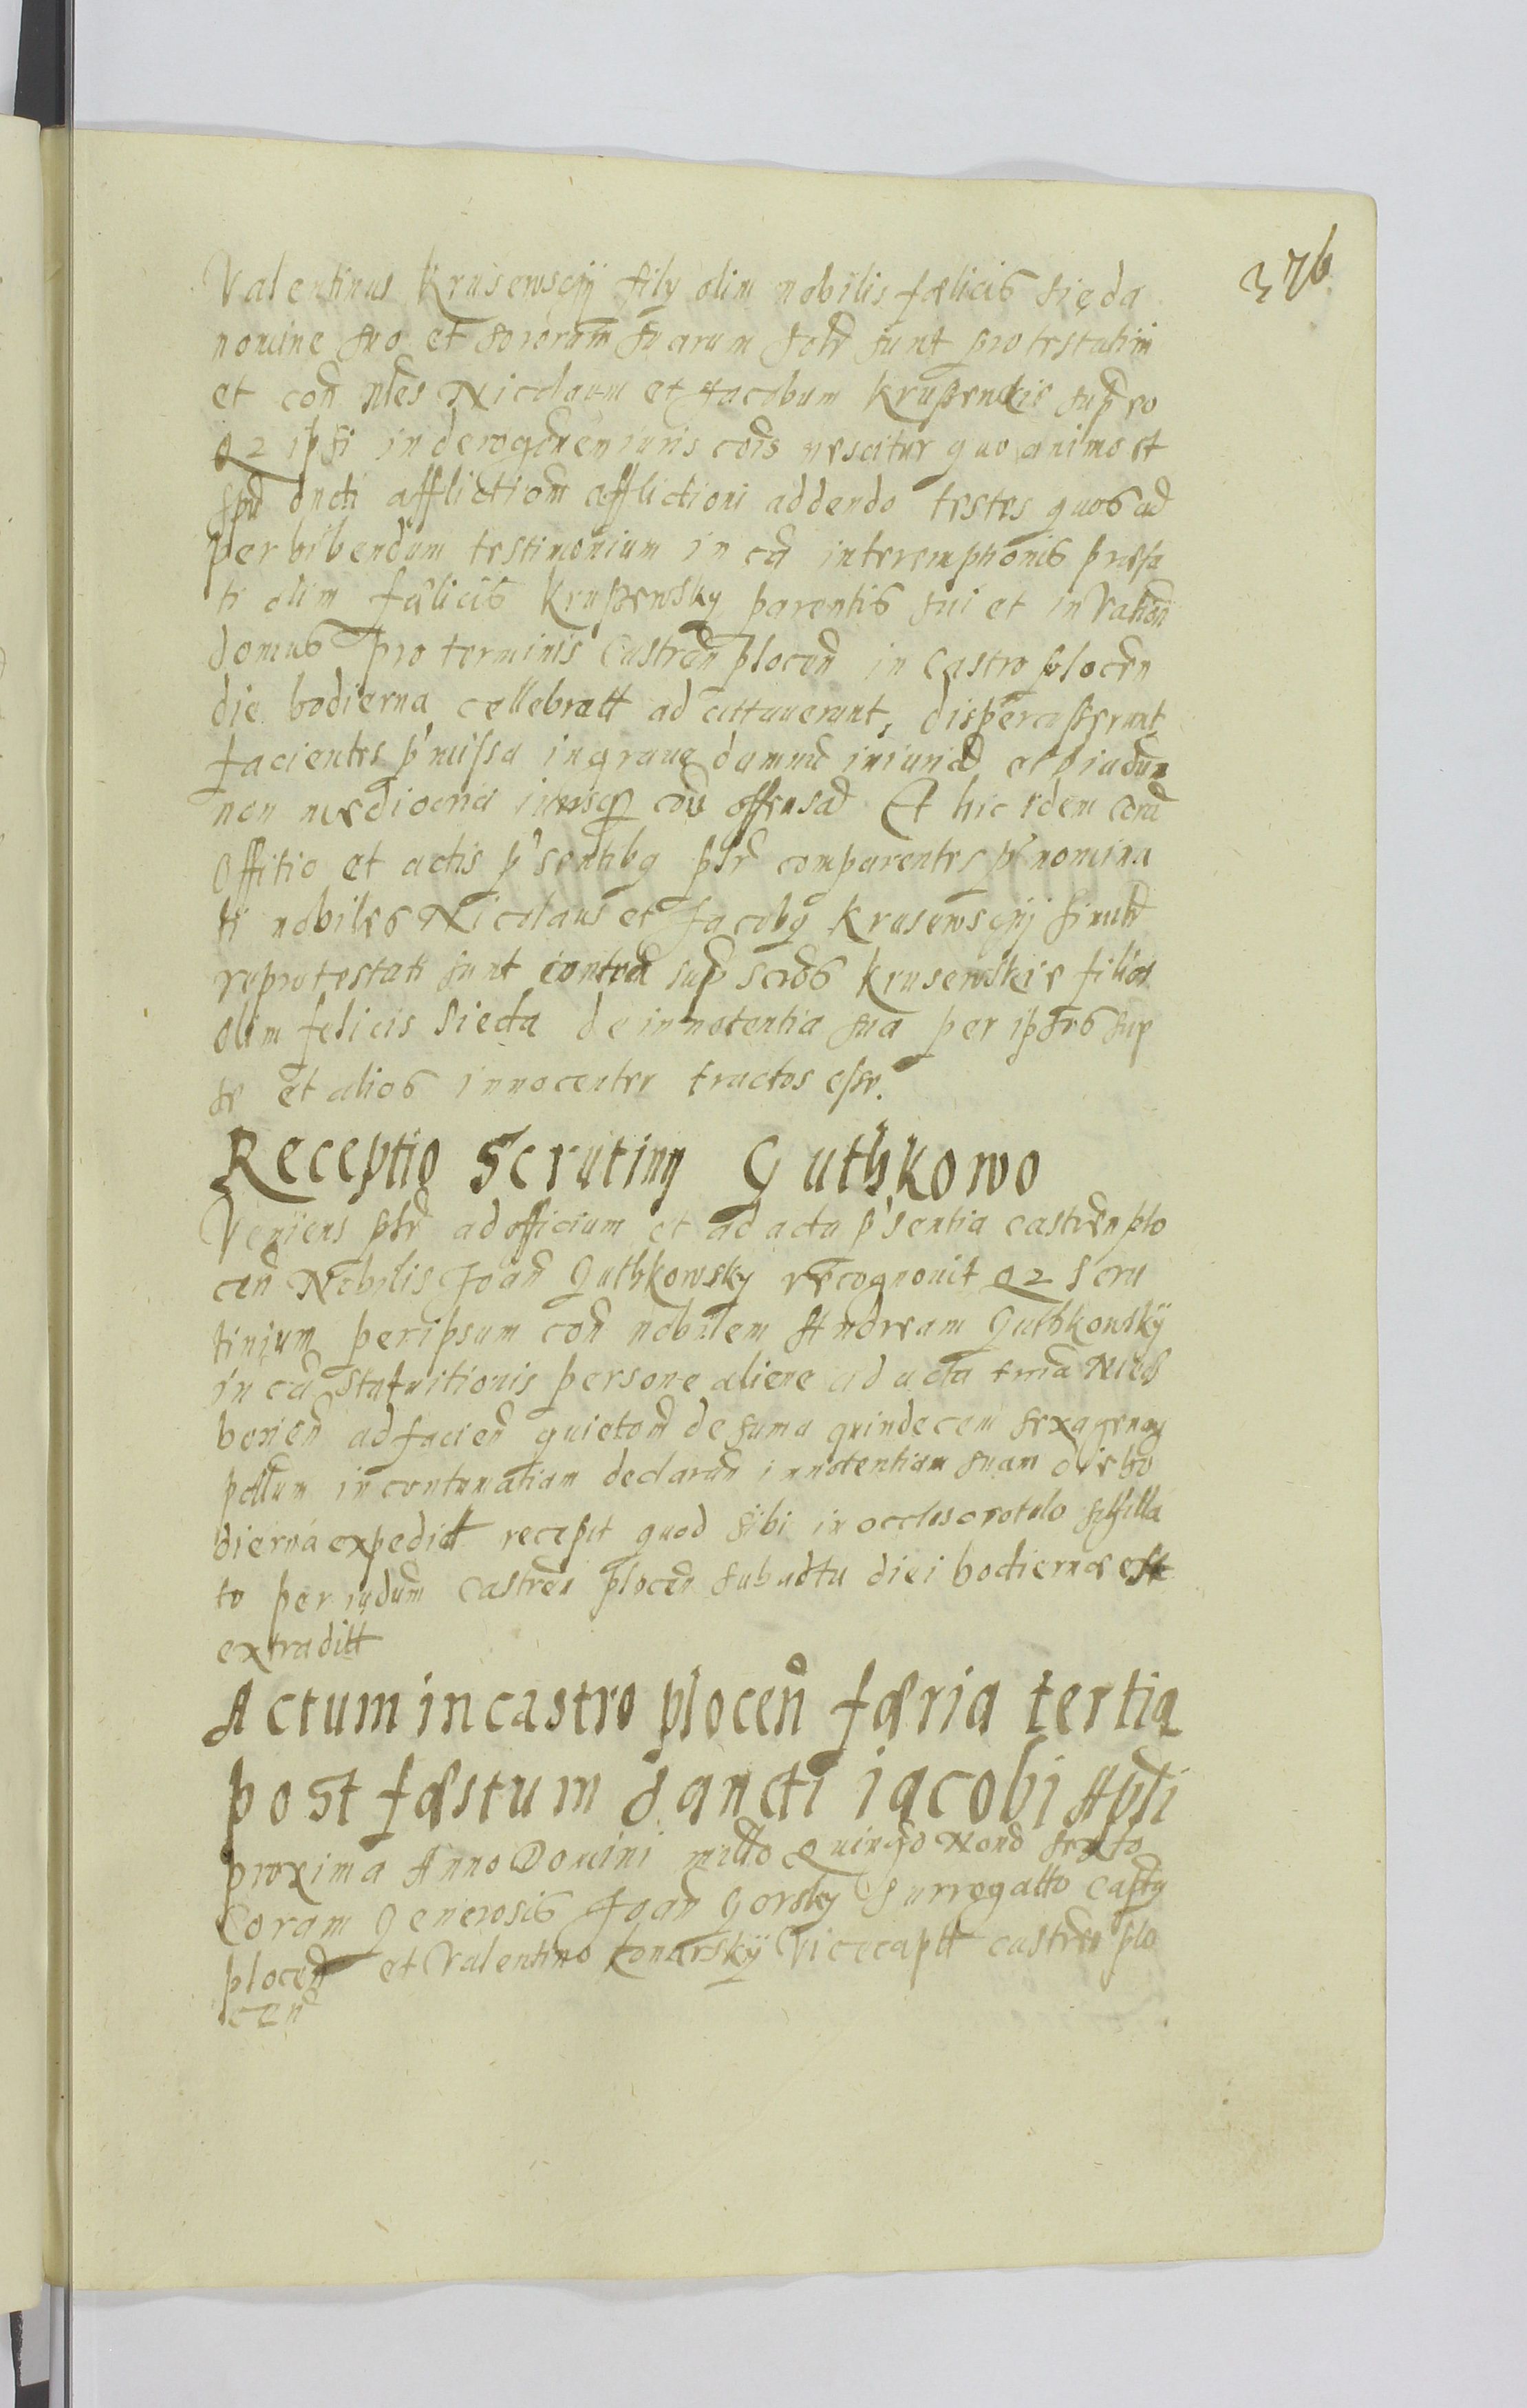 376
Valentinus Krusewscÿ filÿ olim nobilis fœlicis sięda
nomine suo et sororum suarum solr sunt protestati
et con nles Nicolaum et Jacobum Kruszewskie sup eo
Q2 ipsi in derogonem iuris cois nescitur quo animo et
spu ducti afflictiom afflictioni addendo testes quos ad
perhibendum testimonium in ca interemptionis præfa
ti olim fœlicis Kruszewsky parentis sui et invasion
domus pro terminis Castren plocen in Castro plocen
die hodierna cellebratt ad cittaverunt, disperasserunt
facientes p'missa in grave damnu iniuria et
non mediocra iurisq cois offensa Et hic idem cora
Offitio et actis p'sentibq plr comparentes p'nomina
ti nobiles Nicolaus et Jacobq Krusewscÿ simulr
reprotestati sunt contra sup scros Krusewskie filios
olim felicis Siecla de innotentia sua per ipsos sup
se et alios innocenter tractos esse.
Receptio Scrutiny Guthkowo
Veniens plr ad officium et ad acta p'sentia castren plo
cen Nobilis Joan Guthkowsky recognovit Q2 scru
tinium per ipsum con nobilem Andream Guthkowskÿ
in ca statuitionis persone aliene ad acta tria Nied
borien ad facien quietom de suma quindecem sexagenaq
pollum in contumatiam declaran innotentiam suam die ho
dierna expeditt recepit quod sibi in occluso rotulo sigilla
to per iudum Castren plocen sub actu diei hodiernœ est
extraditt
Actum in castro plocen fœria tertia
post fœstum Sancti iacobi Apli
proxima Anno Domini millo Quingo Nono sexto
Coram Generosis Joan Gorsky Surrogatto Castri
plocen et Valentino Konarskÿ Vicecaptt castren plo
cen